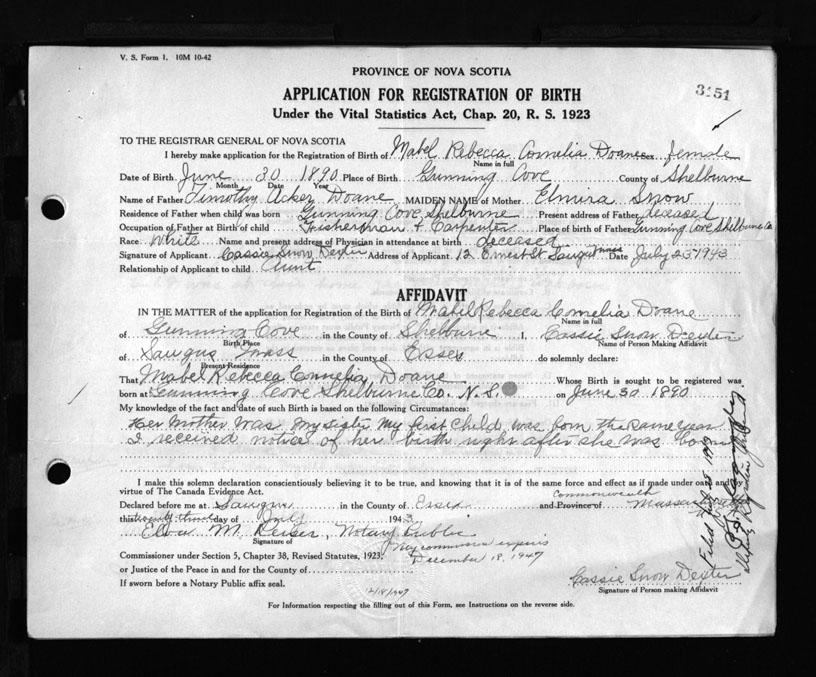 V. S. Form 1. 10M 10-42
PROVINCE OF NOVA SCOTIA
3151
APPLICATION FOR REGISTRATION OF BIRTH
Under the Vital Statistics Act, Chap. 20, R. S. 1923
TO THE REGISTRAR GENERAL OF NOVA SCOTIA
I hereby make application for the Registration of Birth of Mabel Rebecca Cornelia Doane Sex female
Name in full
Date of Birth June 30 1890 Place of Birth Gunning Cove County of Shelburne
Month Date Year
Name of Father Timothy Acker Doane MAIDEN NAME of Mother Elmira Snow
Residence of Father when child was born Gunning Cove Shelburne Present address of Father deceased
Occupation of Father at Birth of child Fisherman & Carpenter Place of birth of Father Gunning Cove Shelburne Co
Race White Name and present address of Physician in attendance at birth deceased
Signature of Applicant Cassie Snow Dexter Address of Applicant 12 Ernest St Saugus Mass Date July 23 1943
Relationship of Applicant to child Aunt
AFFIDAVIT
IN THE MATTER of the application for Registration of the Birth of Mabel Rebecca Cornelia Doane
Name in full
of Gunning Cove in the County of Shelburne I, Cassie Snow Dexter
Birth Place Name of Person Making Affidavit
of Saugus Mass in the County of Essex do solemnly declare:
Present Residence
That Mabel Rebecca Cornelia Doane Whose Birth is sought to be registered was
born at Gunning Cove Shelburne Co. N. S. on June 30 1890
My knowledge of the fact and date of such Birth is based on the following Circumstances:
Her Mother was My sister My first child was born the same year
I received notice of her birth right after she was born
I make this solemn declaration conscientiously believing it to be true, and knowing that it is of the same force and effect as if made under oath and by
virtue of The Canada Evidence Act.
Commonwealth
Declared before me at Saugus in the County of Essex and Province of Massachusetts
this twenty third day of July 1943
M. Notary Public
Signature of
My commission expires
Commissioner under Section 5, Chapter 38, Revised Statutes, 1923,
December 18, 1947
or Justice of the Peace in and for County of
If sworn before a Notary Public affix seal.
12/18/1947
Cassie Snow Dexter
Signature of Person making Affidavit
For Information respecting the filling out of this Form, see Instructions on the reverse side.
Filed
Deputy Registrar General